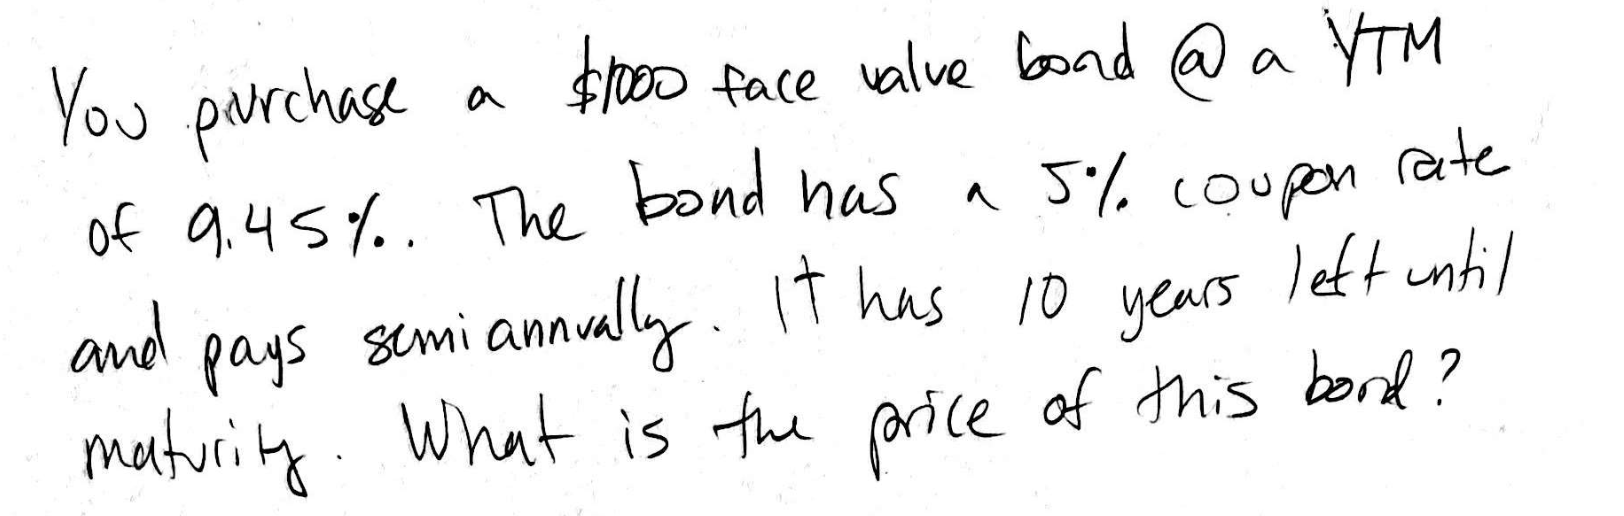 You purchase a $1000 face value bond @ a YTM
of 9.45%. The bond has a 5% coupon rate
and pays semiannually. It has 10 years left until
maturity. What is the price of this bond?